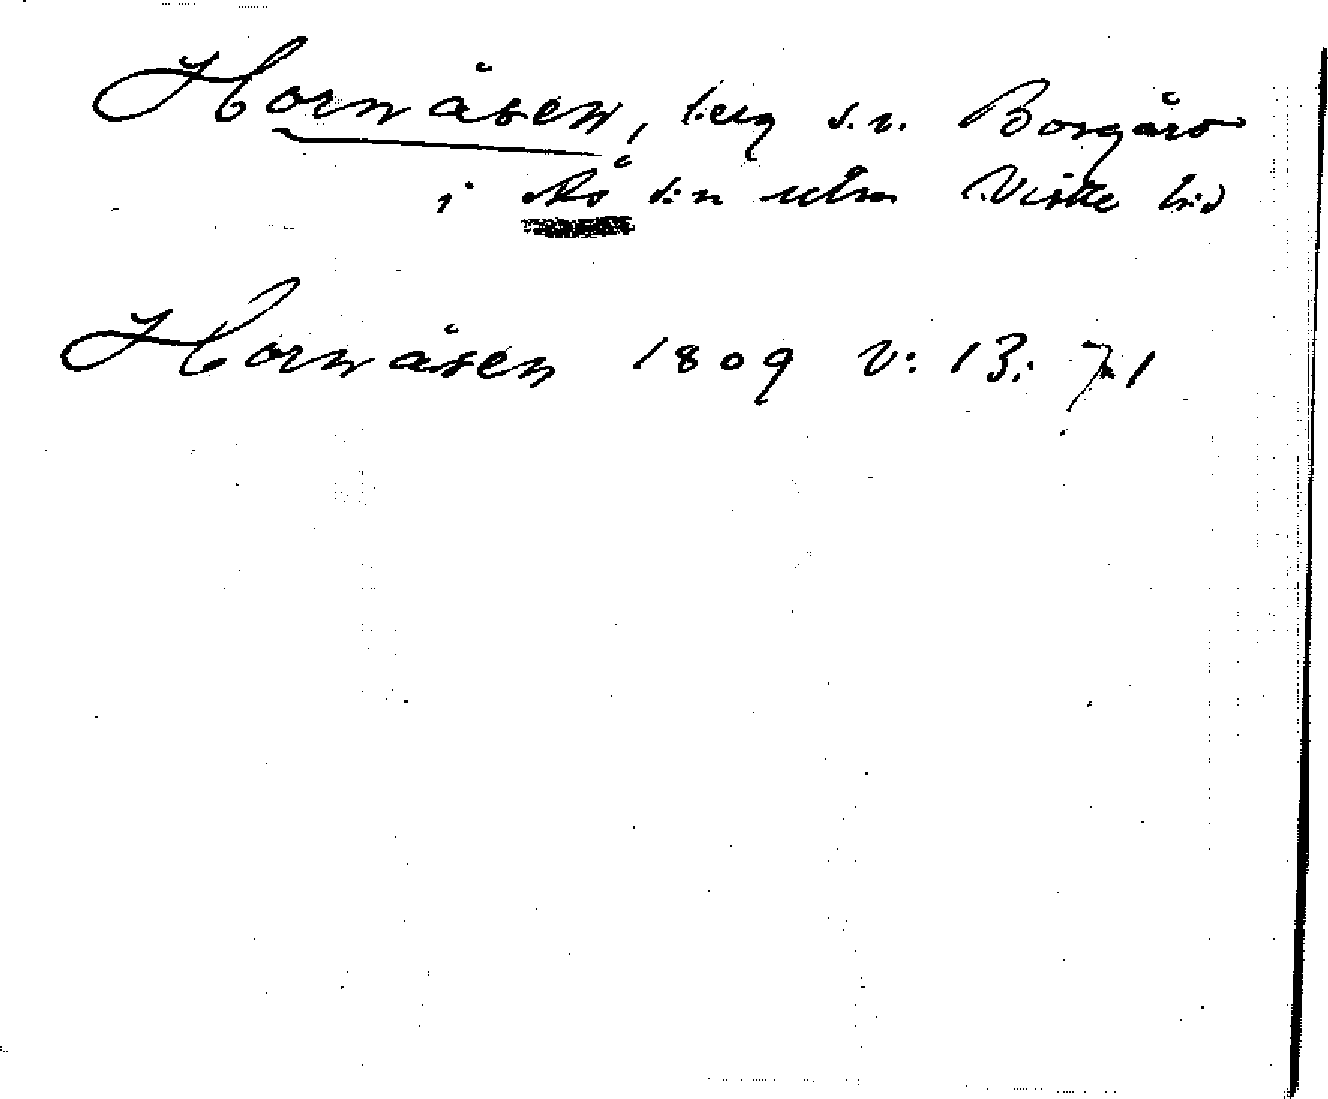 Hornåsen, berg s.v. Borgås
i Ås sn Viske hd
Hornåsen 1809 V: 13: 71